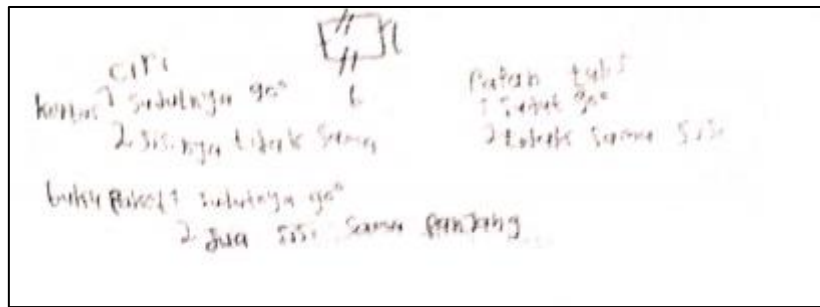 ciri
kertas 1 sudutnya 90°
2. sisinya tidak sama
l
Papan tulis
1 sudut 90°
2 tidak sama sisi
buku paket 1 sudutnya 90°
2 dua sisi sama panjang